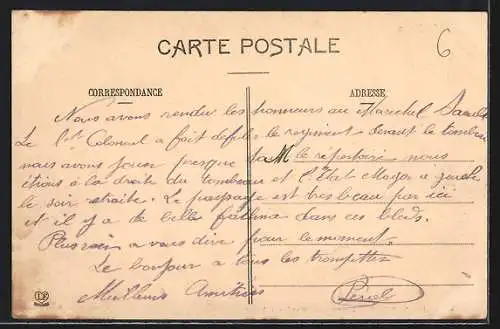 6
CARTE POSTALE
CORRESPONDANCE
ADRESSE
Nous avons rendu les honneurs au Marechal
Le Lt Colonel a fait defiler le regiment devant le tombeau
nous avons jouer presque le répertoire nous
étions à la droite du tombeau et l'Etat Major a gauche
le soir retraite. Le paysage est tres beau par ici
et il y a de belle fatima dans ces bleds.
Plus rien a vous dire pour le moment.
Le bonjour a tous les trompettes
Meilleurs Amitiés